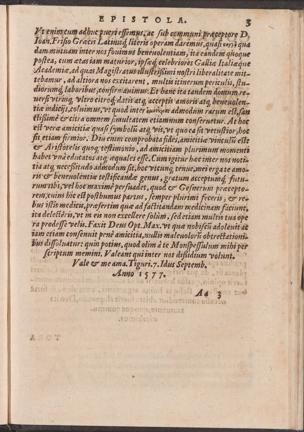 EPISTOLA. 3
Vt enim tum adhuc pueri essemus, ac sub communi præceptore D.
Ioan. Frisio Græcis Latinisq́; literis operam daremus, quasi
dam mutuam inter nos fouimus beneuolentiam, ita tandem quoque
postea, cum ætas iam maturior, ipsaq́; celebriores Galliæ Italiæque
Academiæ, ad quas Magistratus illustrissimi nostri liberalitate mit-
tebamur, ad altiora nos excitarent, multis itinerum periculis, stu-
diorumq́; laboribus, confirmauimus. Et hanc ita tandem domum re-
uersi virimq́; vltro citroq́; datis atq́; acceptis amoris atq́; beneuolen-
tiæ indicijs, coluimus, vt quod inter admodum rarum est, san
ctissimè & citra omnem simultatem etiamnum conseruetur. At hoc
est veræ amicitiæ quasi symbolū atq́; vis, vt quo ea sit vetustior, hoc
sit etiam firmior. Diu enim comprobata fides, amicitiæ vinculū est:
& Aristotelis quoq́; testimonio, ad amicitiam plurimum momenti
habet vnà educatos atq́; æquales esse. Cum igitur hoc inter nos noti-
tiæ atq́; necessitudo admodum sit, hoc vtriusq́; tenus, mei erga te amo-
ris & beneuolentiæ testificandæ genus, gratum acceptumq́; futu-
rum tibi, vel hoc maximè persuadet, quod & Gesnerum præcepto-
rem, cuius hic est posthumus partus, semper plurimi feceris, & re-
bus istis medicis, præsertim quæ ad factitandam medicinam faciunt,
ita delecteris, vt in eis non excellere solùm, sed etiam multis tua ope-
ra prodesse velis. Faxit Deus Opt. Max. vt quæ nobiscū adoleuit at
iam etiam consenuit penè amicitia, nullis maleuolorū obtrectationi-
bus dissoluatur: quin potius, quod olim à te Monspessulum mihi per-
scriptum memini, Valeant qui inter nos dissidium volunt.
Vale & me ama. Tiguri. 7. Idus Septemb.
Anno 1577.
Aa 3